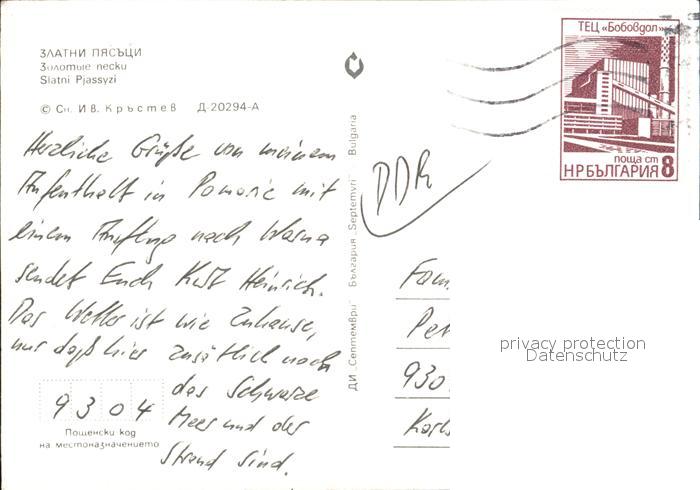 ЗЛАТНИ ПЯСЪЦИ
Золотые пески
Slatni Pjassyzi
© Сн. Ив. Кръстев Д-20294-А
Herzliche Grüße von meinem
Aufenthalt in Pomorie mit
einem Ausflug nach Warna
sendet Euch Kurt Heinrich.
Das Wetter ist wie Zuhause,
nur daß hier zusätzlich noch
das Schwarze
Meer und der
Strand sind.
9304
Пощенски код
на местоназначението
ДИ „Септември" България „Septemvri" Bulgaria
ТЕЦ «Бобовдол»
поща ст
НР БЪЛГАРИЯ 8
DDR
Fam
Pet
930
Karl
privacy protection
Datenschutz